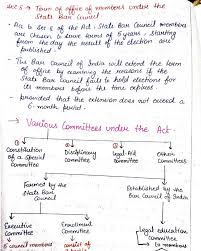 Sec 8 → Term of office of members under the
State Bar Council
• Acc to Sec 8 of the Act : State Bar Council members
are chosen to serve terms of 5 years, starting
from the day the result of the election are
published.
• The Bar Council of India will extend the term
of office by examining the reasons if the
State Bar Council fails to hold elections for
its members before the term expires
provided that the extension does not exceed a
6-month period.
→ Various Committees under the Act -
① ② ③ ④
Constitution Disciplinary Legal-Aid Other
of a Special Committee Committee Committees
Committee
Formed by the Established by the
State Bar Bar Council of India
Council
Executive Enrolment Legal education
Committee Committee Committee
5 council consist of (10 members)